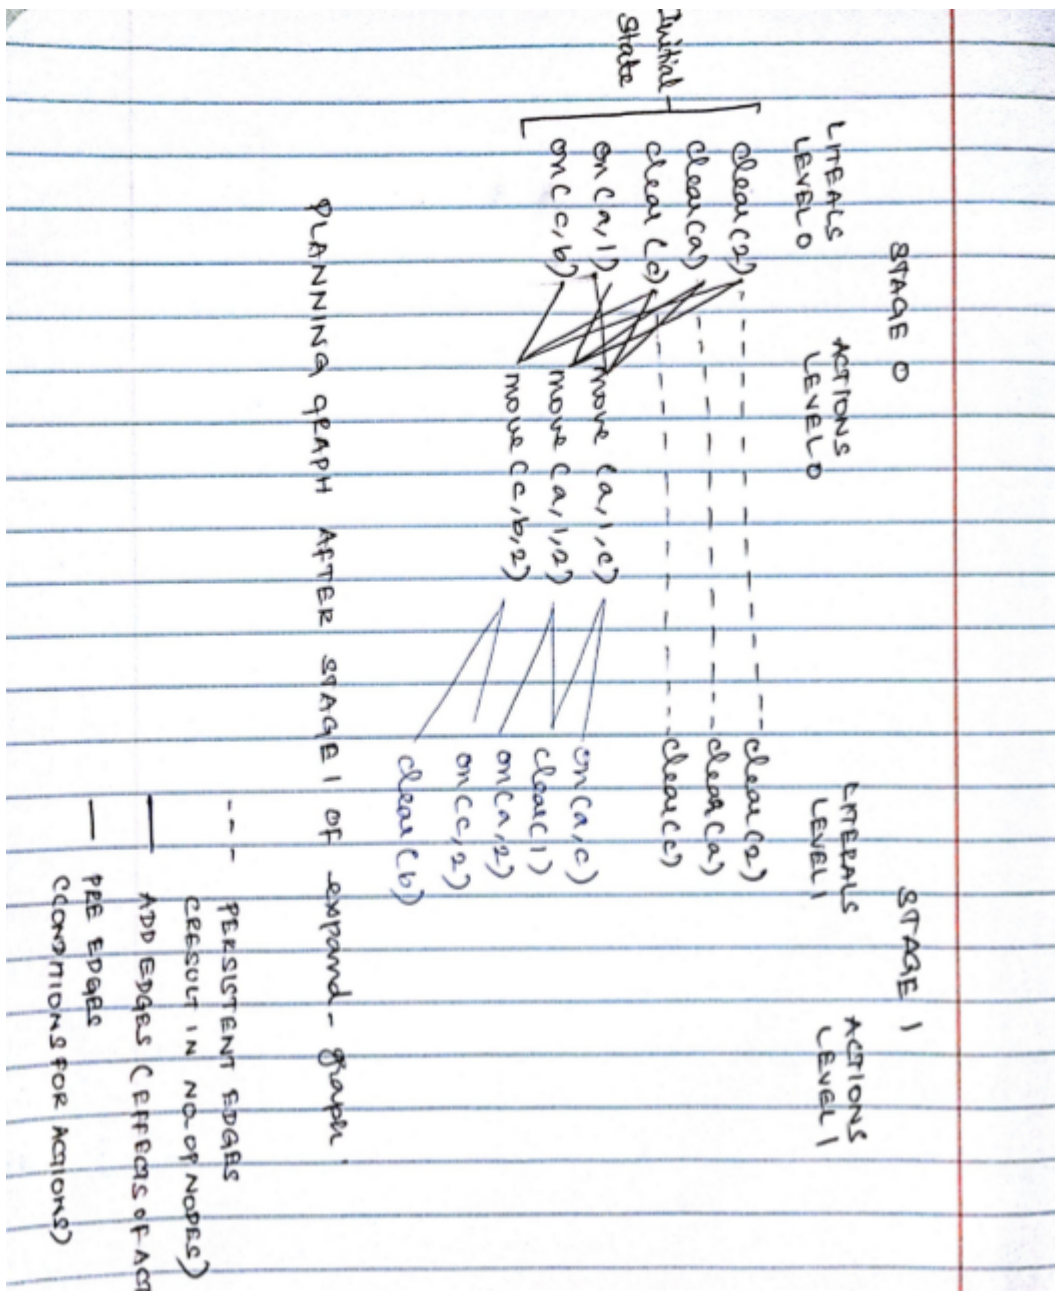 STAGE 0
STAGE 1
LITEALS
LEVEL0
ACTIONS
LEVEL0
LITERALS
LEVEL1
ACTIONS
LEVEL1
Initial
State
clear(2)
clear(a)
clear(c)
on(a,1)
on(c,b)
move (a,1,c)
move (a,1,2)
move (c,b,2)
clear(2)
clear(a)
clear(c)
on(a,c)
clear(1)
on(a,2)
on(c,2)
clear(b)
PLANNING GRAPH AFTER STAGE 1 OF expand-graph.
--- PERSISTENT EDGES
(RESULT IN NO.OP NODES)
ADD EDGES (EFFECTS OF ACT
PRE EDGES
(CONDITIONS FOR ACTIONS)